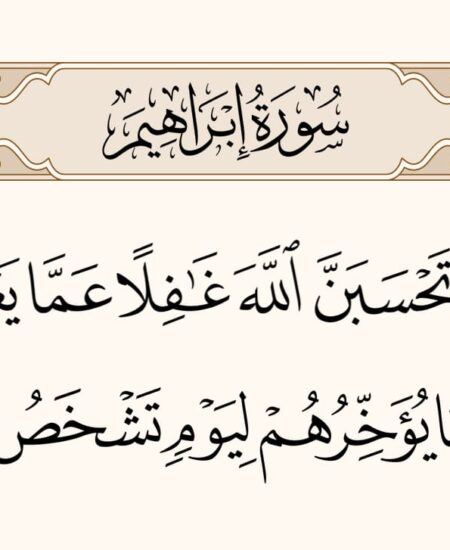 سُورَةُ إِبْرَاهِيمَ
تَحْسَبَنَّ ٱللَّهَ غَٰفِلًا عَمَّا يَعْ
يُؤَخِّرُهُمْ لِيَوْمٍ تَشْخَصُ